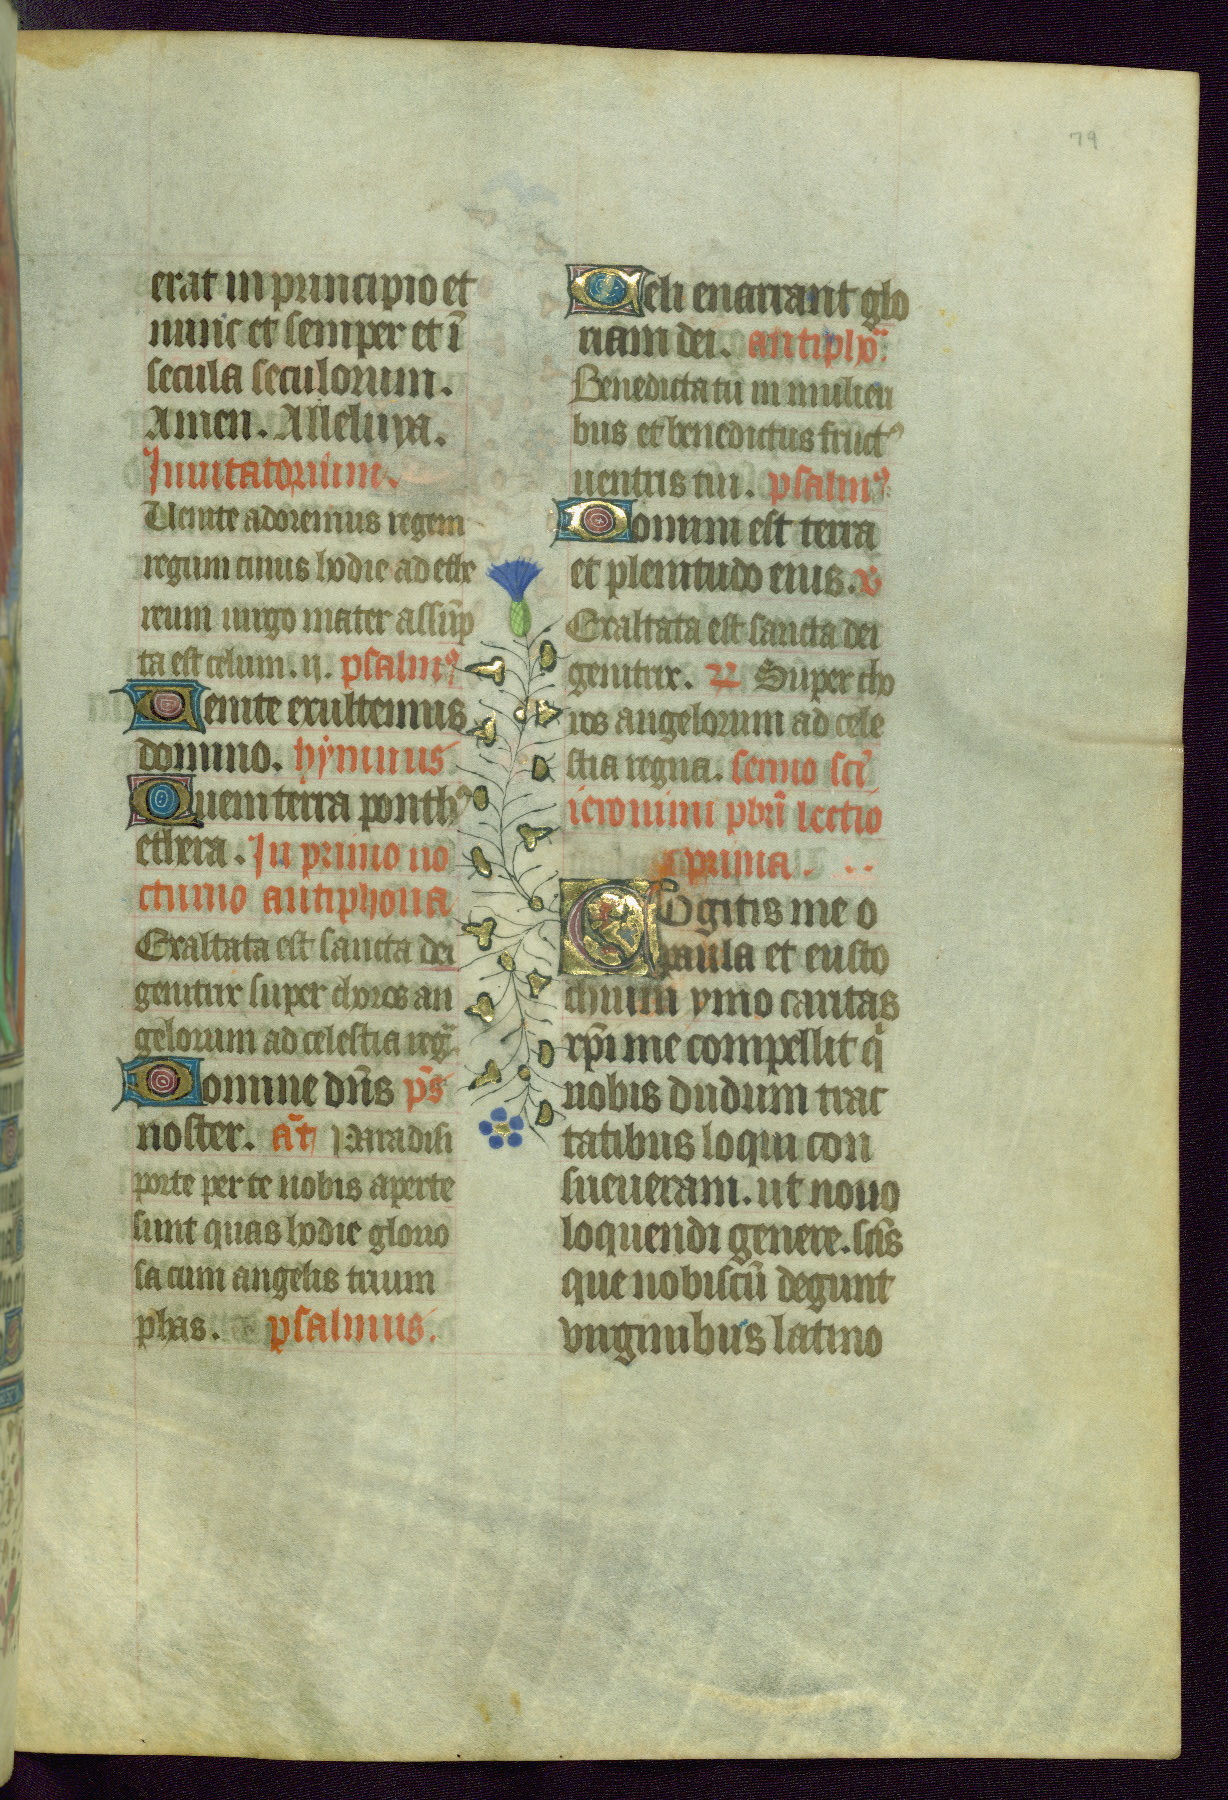 79
erat in principio et
nunc et semper et ī
secula seculorum.
Amen. Alleluya.
Inuitatorium.
Uenite adoremus regem
regum cuius hodie ad ethe
reum uirgo mater assūp
ta est celum. ij. psalmꝰ
Uenite exultemus
domino. hỹmnus
Quem terra ponthꝰ
ethera. In primo no
cturno antiphona
Exaltata est sancta dei
genitrix super choros an
gelorum ad celestia reg̃
Domine dn̄s p̄s
noster. añt Paradisi
porte per te nobis aperte
sunt quas hodie glorio
sa cum angelis trium
phas. psalmus.
Celi enarrant glo
riam dei. antipho.
Benedicta tu in mulieri
bus et benedictus fructꝰ
uentris tui. psalmꝰ
Domini est terra
et plenitudo eius. v
Exaltata est sancta dei
genitrix. R Super cho
ros angelorum ad cele
stia regna. sermo sc̄i
ieronimi pbr̄i lectio
prima.
Cogitis me o
paula et eusto
chium ymo caritas
xp̄i me compellit q̄
nobis dudum trac
tatibus loqui con
sueueram. ut nouo
loquendi genere. sc̄is
que nobiscū degunt
virginibus latino